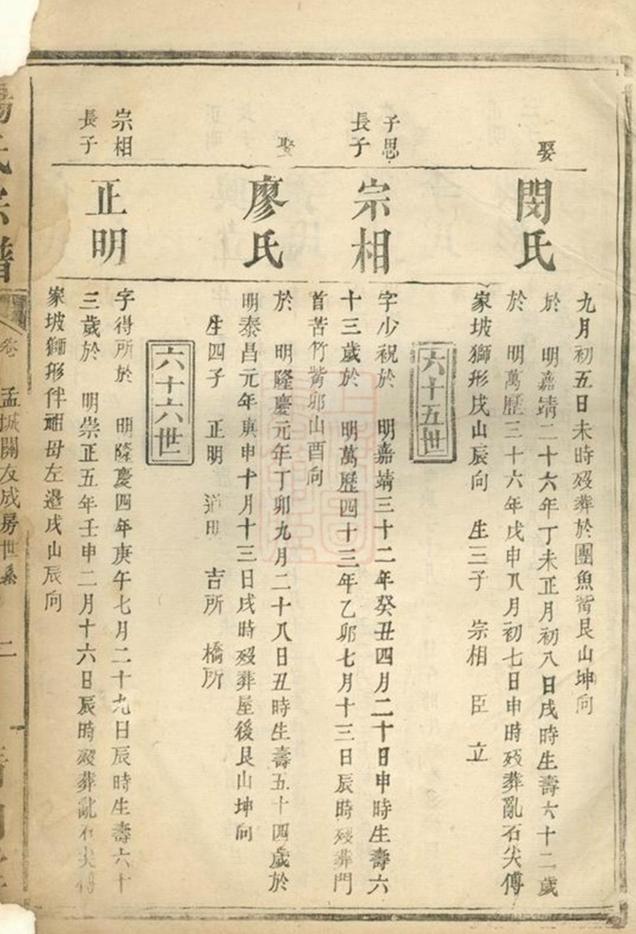 九月初五日未時歿葬於團魚嘴艮山坤向
娶
閔氏
於 明嘉靖二十六年丁未正月初八日戌時生壽六十二歲
於 明萬歷三十六年戊申八月初七日申時歿葬亂石尖傅
家坡獅形戌山辰向 生三子 宗相 臣 立
六十五世
子思
長子
宗相
字少祝於 明嘉靖三十二年癸丑四月二十日申時生壽六
十三歲於 明萬歷四十三年乙卯七月十三日辰時歿葬門
首苦竹嘴卯山酉向
娶
廖氏
於 明隆慶元年丁卯九月二十八日丑時生壽五十四歲於
明泰昌元年庚申十月十三日戌時歿葬屋後艮山坤向
生四子 正明 道明 吉所 橋所
六十六世
宗相
長子
正明
字得所於 明隆慶四年庚午七月二十九日辰時生壽六十
三歲於 明崇正五年壬申二月十六日辰時歿葬亂石尖傅
家坡獅形伴祖母左邊戌山辰向
氏宗譜
卷
孟城關友成房世系
二